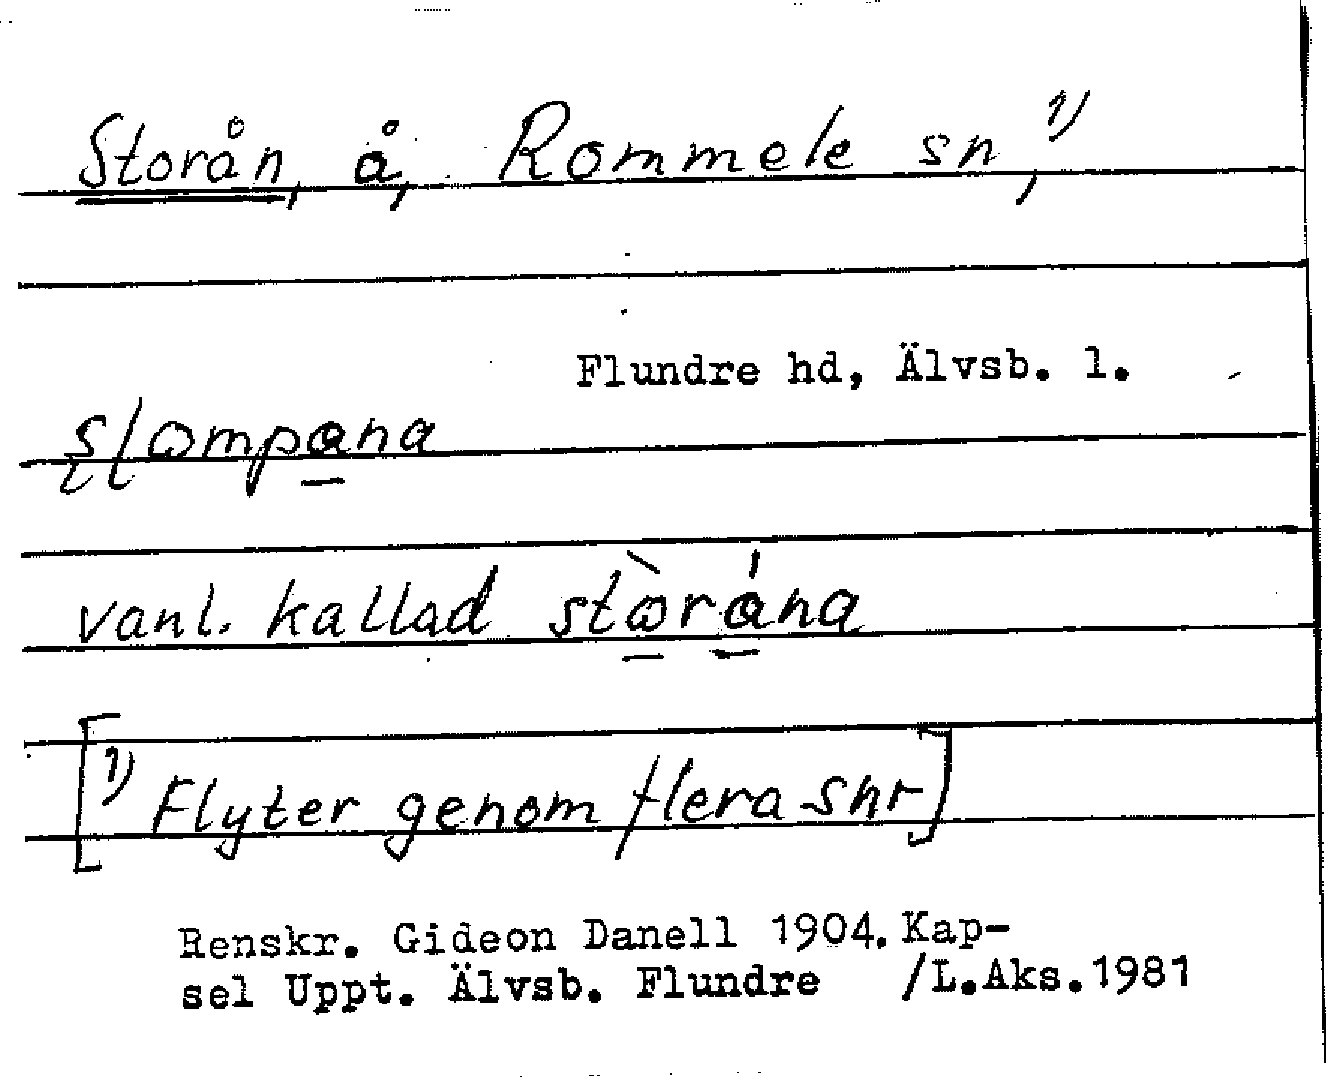 Storån, å, Rommele sn,¹⁾
Flundre hd, Älvsb. l.
slompana
vanl. kallad stòrána
[¹⁾ Flyter genom flera snr]
Renskr. Gideon Danell 1904. Kap-
sel Uppt. Älvsb. Flundre /L.Aks.1981